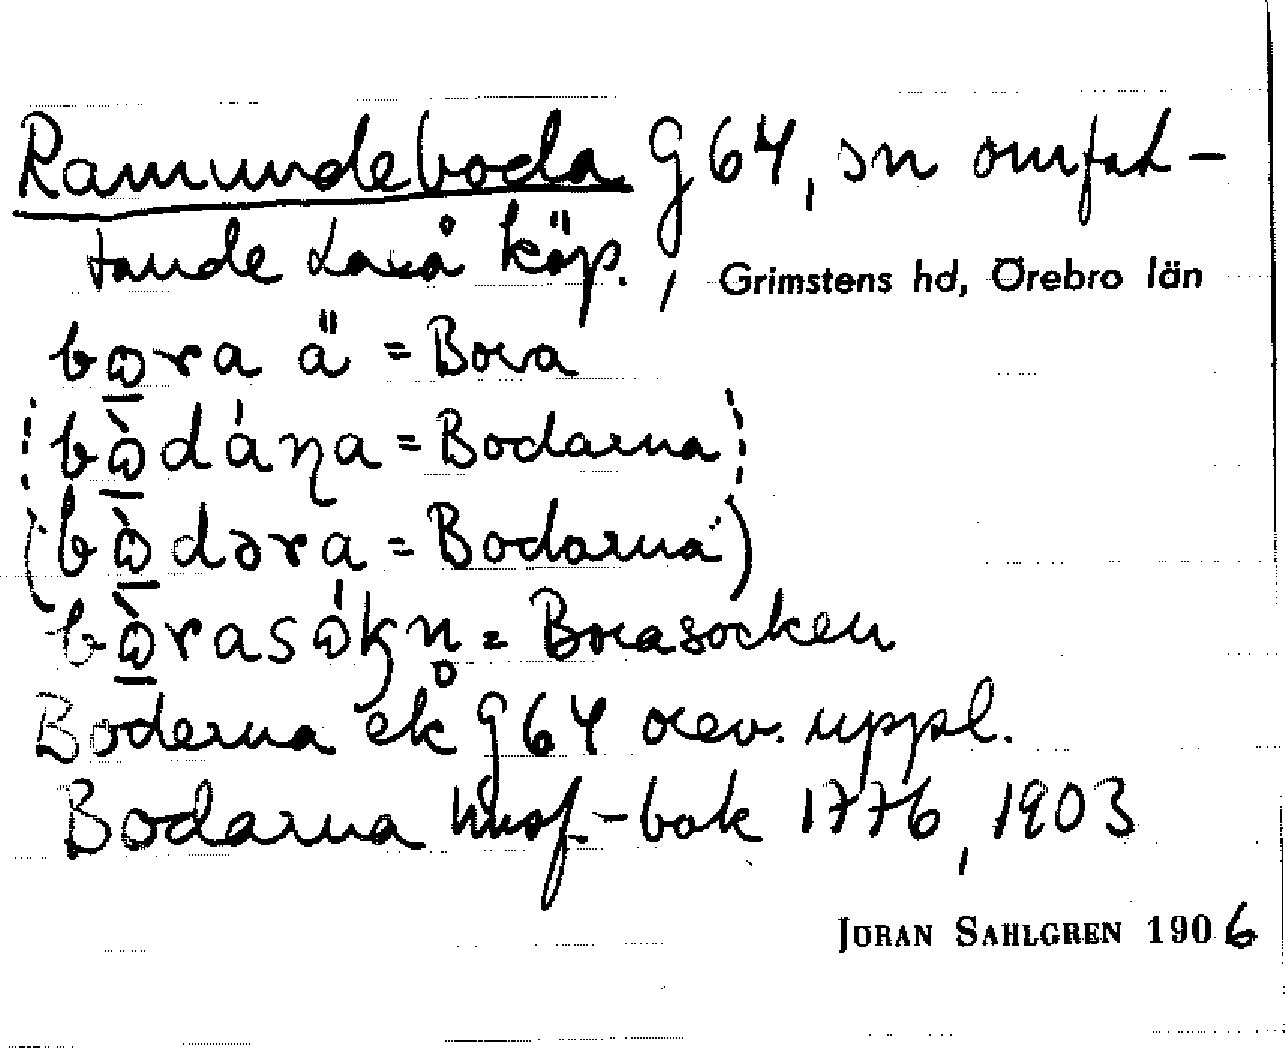 Ramundeboda G64, sn omfat-
tande Laxå köp., Grimstens hd, Örebro län
bòra ä = Bora
(bòdáṇa = Bodarna)
(bòdəra = Bodarna)
bòrasókn̥ = Borasocken
Boderna ek G64 rev. uppl.
Bodarna husf-bok 1776, 1903
JÖRAN SAHLGREN 1906